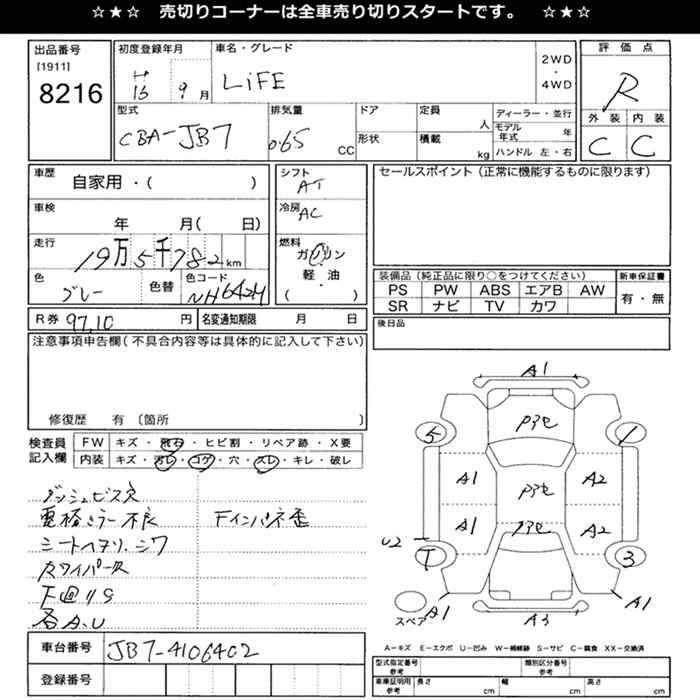 ☆★☆ 売切りコーナーは全車売り切りスタートです。 ☆★☆
出品番号
[1911]
8216
初度登録年月
H
16 9 月
車名・グレード
LiFE
2WD
・
4WD
評価点
R
外装 内装
C C
型式
CBA-JB7
排気量
0.65 CC
ドア
形状
定員
人
積載
kg
ディーラー・並行
モデル年式 年
ハンドル 左・右
車歴
自家用・( )
車検
年 月( 日)
走行
19万5千782km
色
グレー
色替
色コード
NH642M
シフト
AT
冷房
AC
燃料
ガソリン
軽・油
( )
セールスポイント(正常に機能するものに限ります)
装備品(純正品に限り○をつけてください)
新車保証書
PS PW ABS エアB AW
SR ナビ TV カワ
有・無
後日品
R券 97.10 円
名変通知期限 月 日
注意事項申告欄(不具合内容等は具体的に記入して下さい)
修復歴 有 〔箇所 〕
検査員
記入欄
FW キズ・飛石・ヒビ割・リペア跡・X要
内装 キズ・汚レ・コゲ・穴・スレ・キレ・破レ
ダッシュビス穴
電格ミラー不良 Fインパネ歪
シートヘタリ、シワ
下回りS
各A.U
A1
5
P3e
1
A1
P3e
A2
A1
P3e
A2
U2
T
3
スペア
A1
A3
A1
車台番号
JB7-4106402
登録番号
A−キズ E−エクボ U−凹み W−補修跡 S−サビ C−腐食 XX−交換済
型式指定番号
参考
類別区分番号
参考
車庫証明用
参考
長さ cm 幅 cm 高さ cm